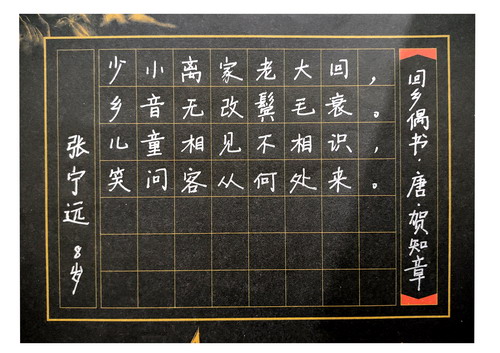 回乡偶书·唐·贺知章
少小离家老大回，
乡音无改鬓毛衰。
儿童相见不相识，
笑问客从何处来。
张宁远 8岁